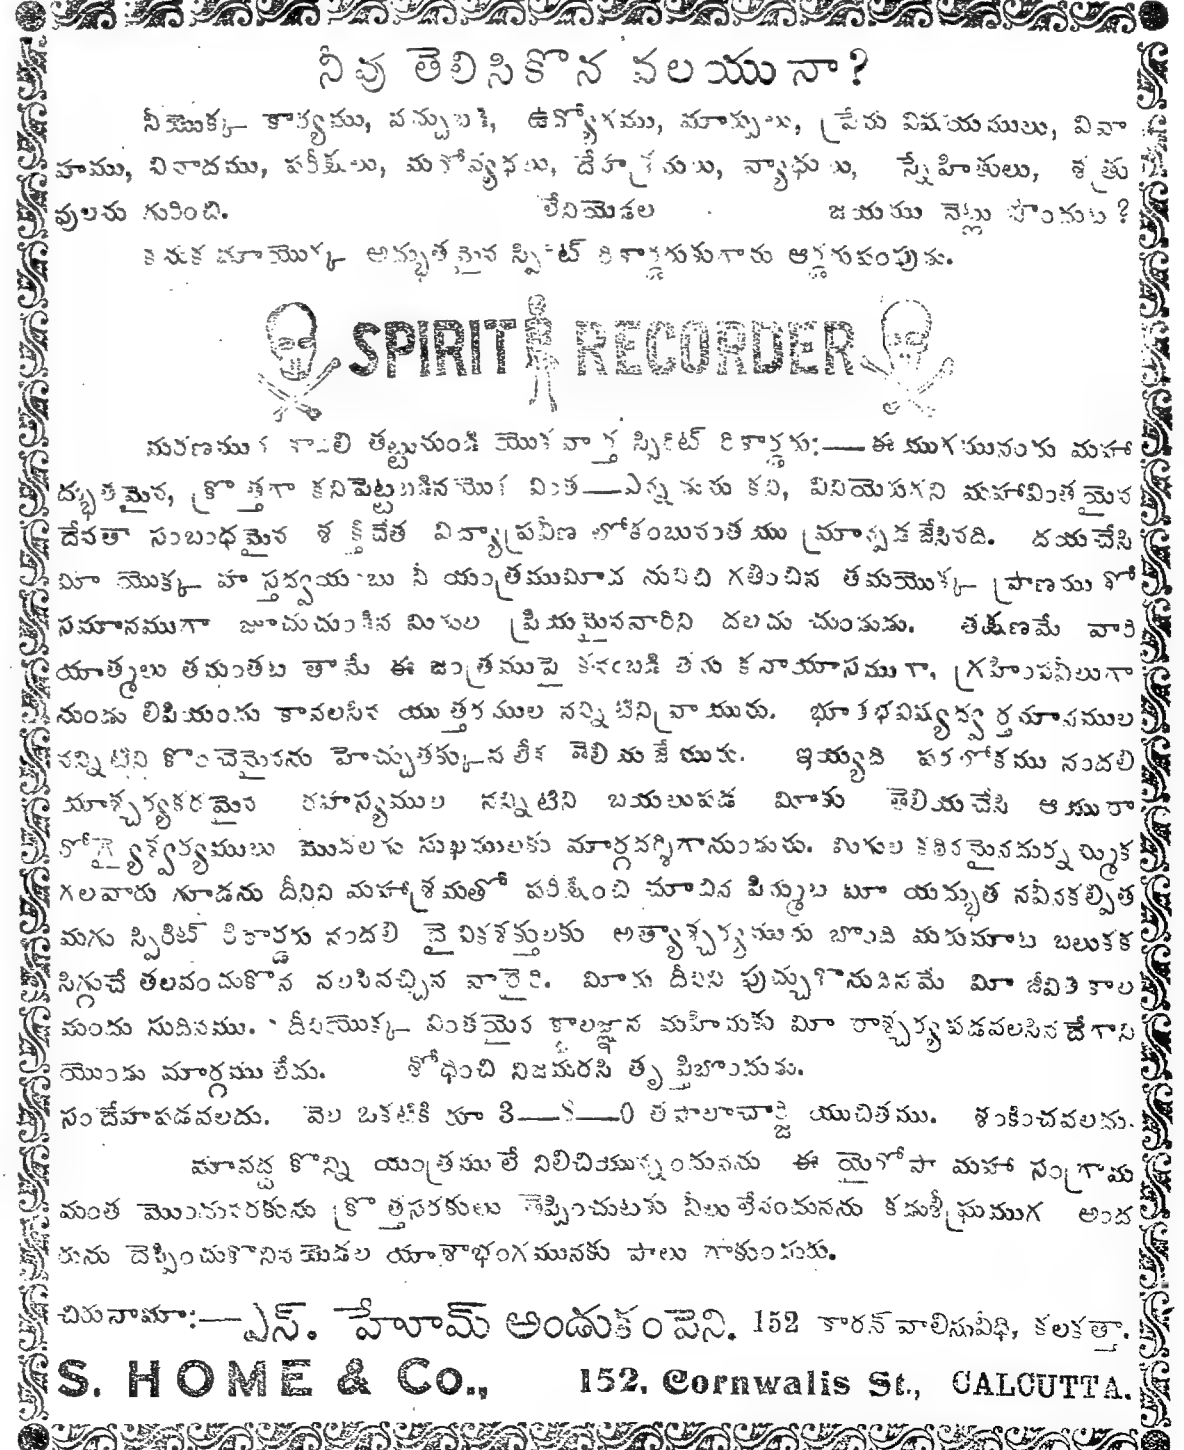 నీవు తెలిసికొన వలయునా?
నీయొక్క కార్యము, పన్నుబడి, ఉద్యోగము, మార్పులు, ప్రేమ విషయములు, వివా
హము, వివాదము, పరీక్షలు, మనోవ్యధలు, దేహశ్రమలు, వ్యాధులు, స్నేహితులు, శత్రు
వులను గురించి. లేనియెడల జయము నెట్లు పొందుట?
కనుక మాయొక్క అద్భుతమైన స్పిరిట్ రికార్డరుకుగాను ఆర్డరుపంపుడు.
SPIRIT RECORDER
మరణముకావలి తట్టునుండి యొకవార్త స్పిరిట్ రికార్డరు:—ఈ యుగమునందు మహా
ద్భుతమైన, క్రొత్తగా కనిపెట్టబడినయొక వింత—ఎన్నడును కని, వినియెరుగని మహావింతయైన
దేవతా సంబంధమైన శక్తిచేత విద్యాప్రవీణ లోకంబునంతయు మ్రాన్పడజేసినది. దయచేసి
మీ యొక్క హస్తద్వయంబు నీ యంత్రముమీద నునిచి గతించిన తమయొక్క ప్రాణముతో
సమానముగా జూచుచుండిన మిగుల ప్రియమైనవారిని దలచుచుండుడు. తక్షణమే వారి
యాత్మలు తమంతట తామే ఈ జంత్రముపై కనంబడి తమ కనాయాసముగా, గ్రహింపవీలుగా
నుండు లిపియందు కావలసిన యుత్తరముల నన్నిటిని వ్రాయును. భూతభవిష్యద్వర్తమానముల
నన్నిటిని కొంచెమైనను హెచ్చుతక్కువలేక తెలియజేయును. ఇయ్యది పరలోకము నందలి
యాశ్చర్యకరమైన రహస్యముల నన్నిటిని బయలుపడ మీకు తెలియచేసి ఆయురా
రోగ్యైశ్వర్యములు మొదలగు సుఖములకు మార్గదర్శిగానుండును. మిగుల కఠినమైనమర్న మ్మిక
గలవారు గూడను దీనిని మహాశ్రమతో పరీక్షించి చూచిన పిమ్మట మా యద్భుత నవీనకల్పిత
మగు స్పిరిట్ రికార్డరు నందలి దైవికశక్తులకు అత్యాశ్చర్యమును బొంది మరుమాట బలుకక
సిగ్గుచే తలవంచుకొన వలసివచ్చిన వారైరి. మీరు దీనిని పుచ్చుకొనుదినమే మీ జీవితకాల
మందు సుదినము. దీనియొక్క వింతయైన కాలజ్ఞాన మహిమకు మీ రాశ్చర్యపడవలసినదేగాని
యొండు మార్గము లేదు. శోధించి నిజమరసి తృప్తిబొందుడు.
సందేహపడవలదు. వెల ఒకటికి రూ 3—8—0 తపాలాచార్జి యుచితము. శంకించవలదు.
మావద్ద కొన్ని యంత్రములే నిలిచియున్నందునను ఈ యైరోపా మహా సంగ్రామ
మంత మొందువరకును క్రొత్తసరకులు తెప్పించుటకు వీలులేనందునను కడుశీఘ్రముగ అంద
రును దెప్పించుకొనినయెడల యాశాభంగమునకు పాలు గాకుందురు.
చిరునామా:—ఎస్. హేూమ్ అండుకంపెని. 152 కారన్ వాలిసువీధి, కలకత్తా.
S. HOME & Co., 152. Cornwalis St., CALCUTTA.